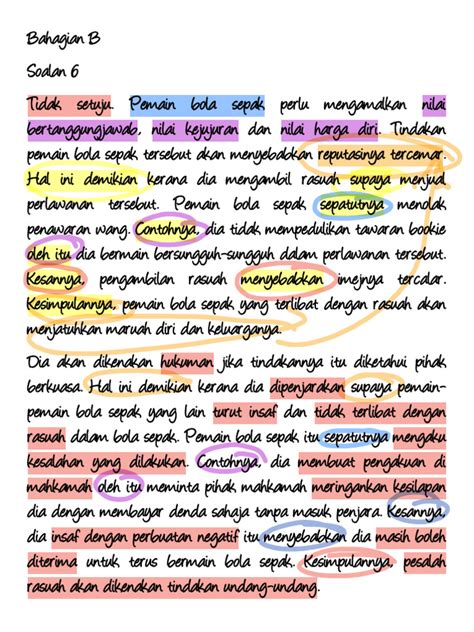 Bahagian B
Soalan 6
Tidak setuju. Pemain bola sepak perlu mengamalkan nilai
bertanggungjawab, nilai kejujuran dan nilai harga diri. Tindakan
pemain bola sepak tersebut akan menyebabkan reputasinya tercemar.
Hal ini demikian kerana dia mengambil rasuah supaya menjual
perlawanan tersebut. Pemain bola sepak sepatutnya menolak
penawaran wang. Contohnya, dia tidak mempedulikan tawaran bookie
oleh itu dia bermain bersungguh-sungguh dalam perlawanan tersebut.
Kesannya, pengambilan rasuah menyebabkan imejnya tercalar.
Kesimpulannya, pemain bola sepak yang terlibat dengan rasuah akan
menjatuhkan maruah diri dan keluarganya.
Dia akan dikenakan hukuman jika tindakannya itu diketahui pihak
berkuasa. Hal ini demikian kerana dia dipenjarakan supaya pemain-
pemain bola sepak yang lain turut insaf dan tidak terlibat dengan
rasuah dalam bola sepak. Pemain bola sepak itu sepatutnya mengaku
kesalahan yang dilakukan. Contohnya, dia membuat pengakuan di
mahkamah oleh itu meminta pihak mahkamah meringankan kesilapan
dia dengan membayar denda sahaja tanpa masuk penjara. Kesannya,
dia insaf dengan perbuatan negatif itu menyebabkan dia masih boleh
diterima untuk terus bermain bola sepak. Kesimpulannya, pesalah
rasuah akan dikenakan tindakan undang-undang.